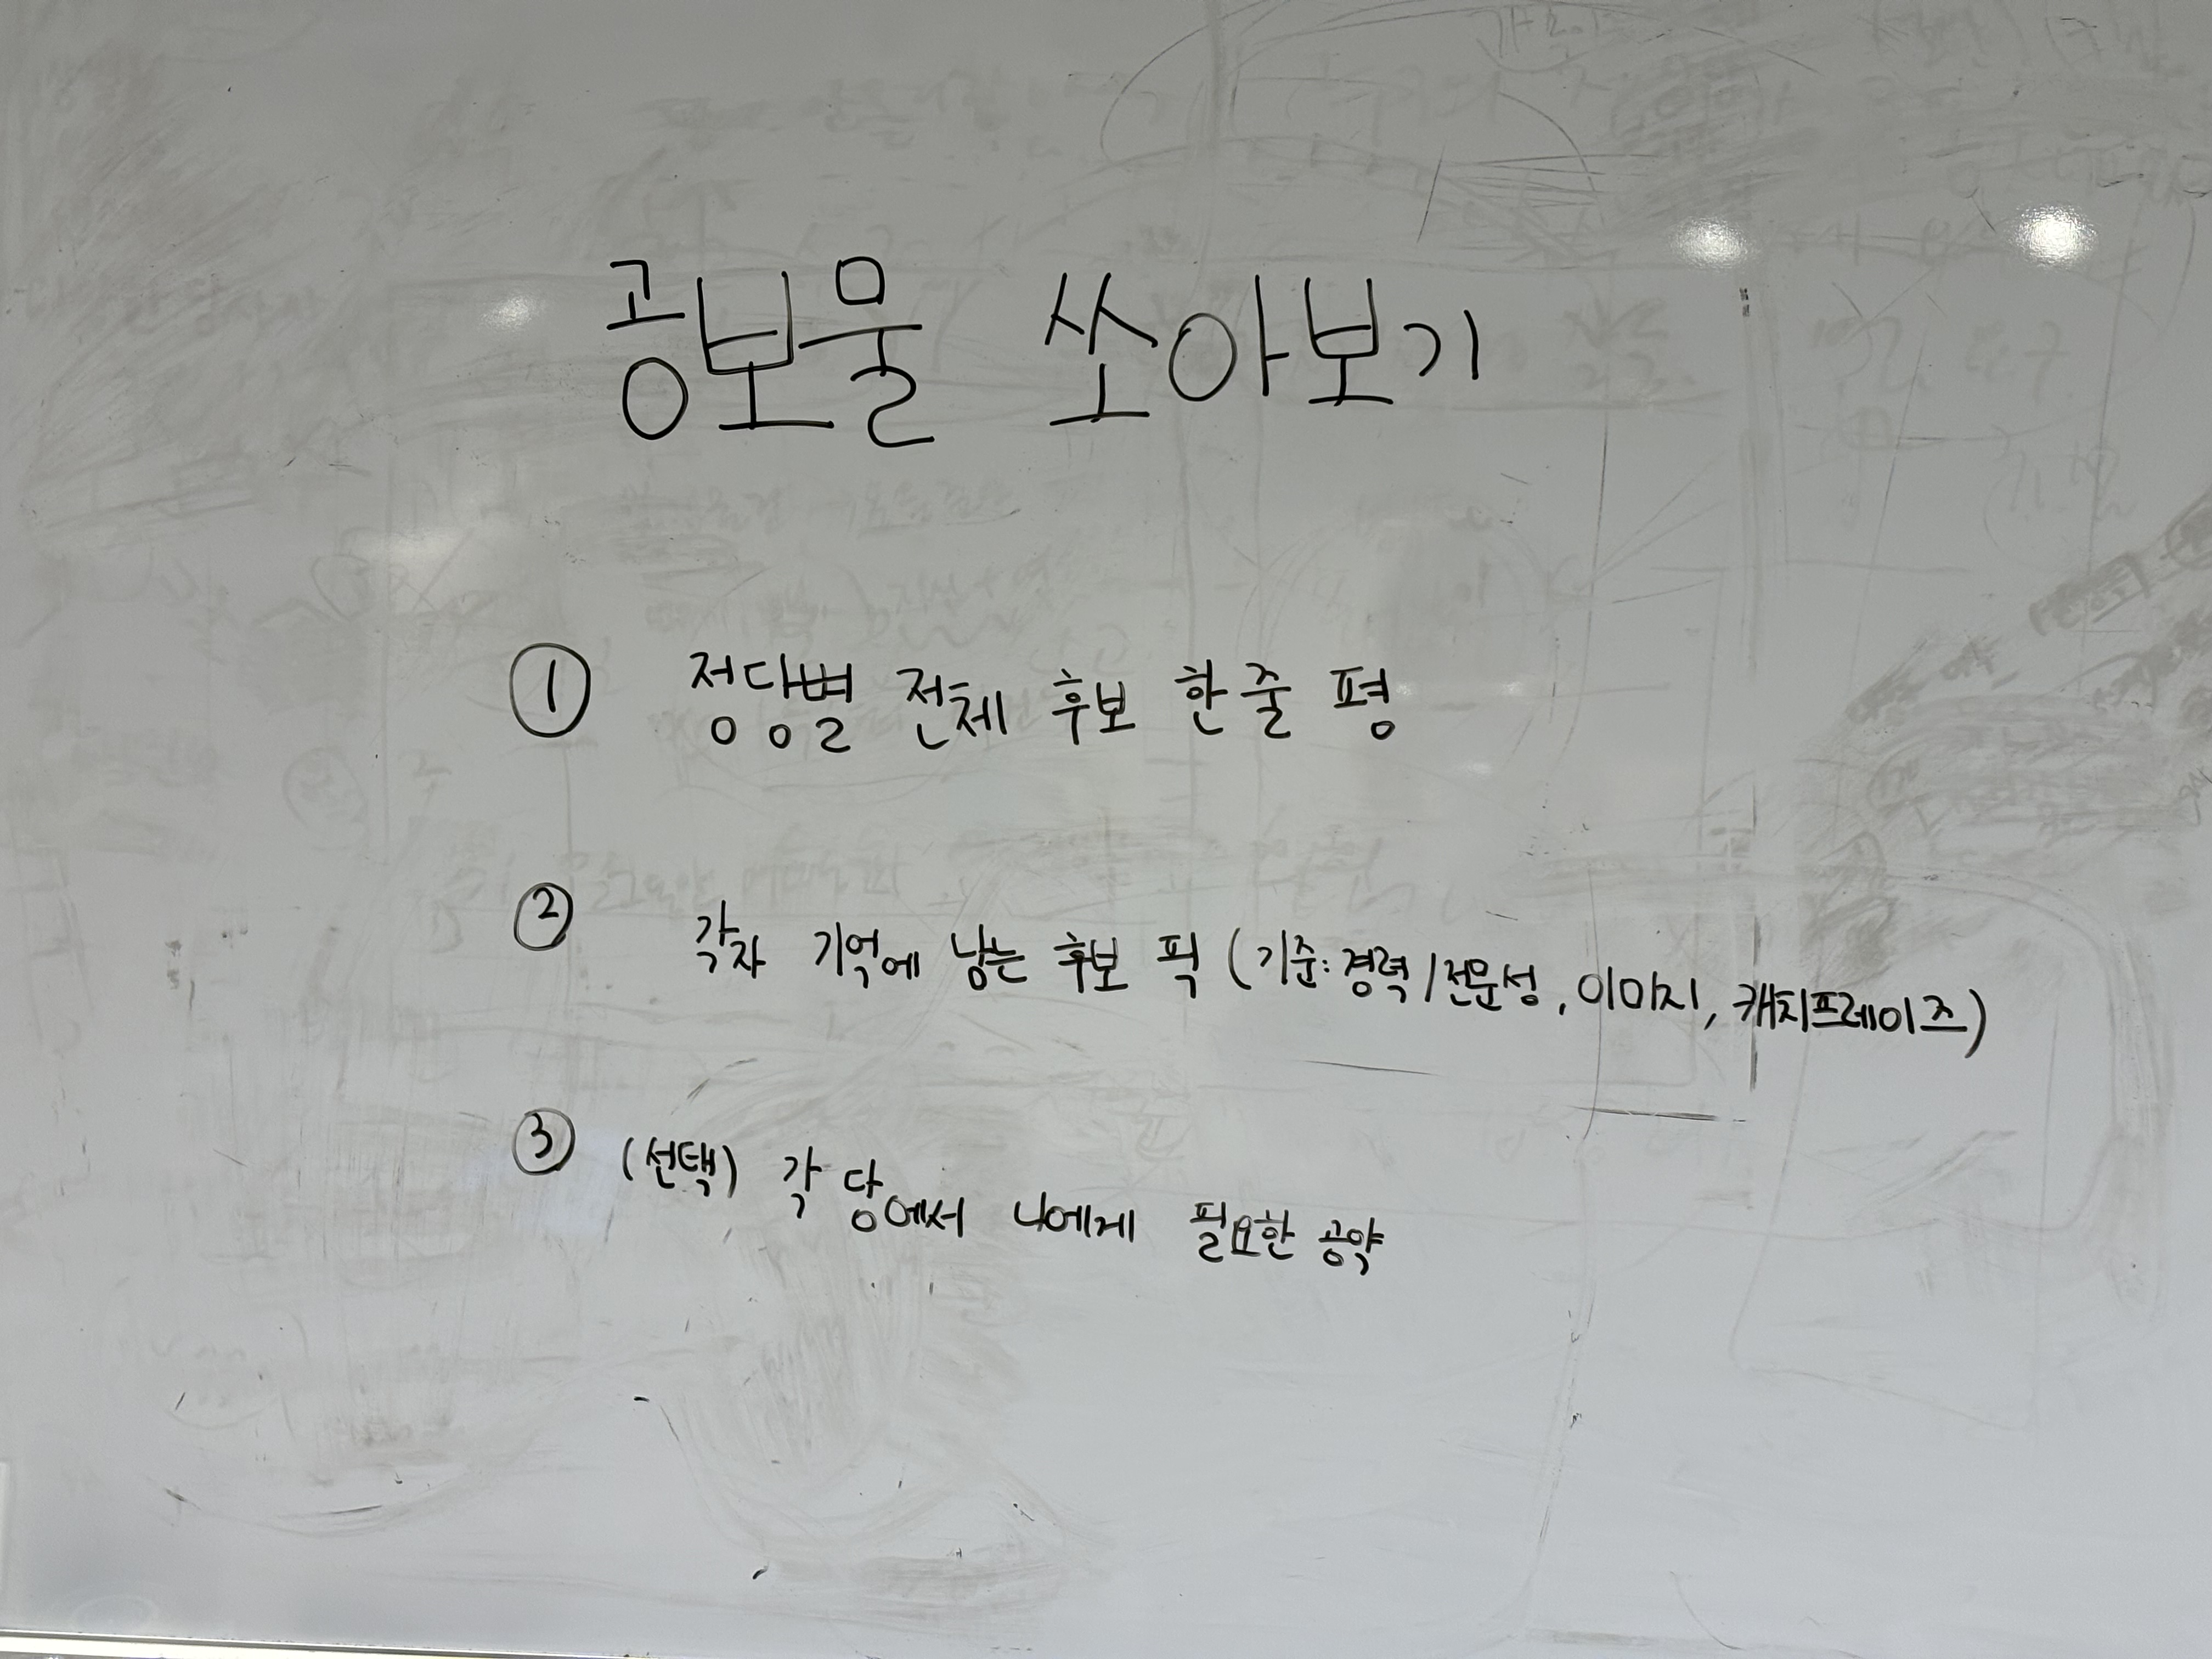 공보물 쏘아보기
① 정당별 전체 후보 한줄 평
② 각자 기억에 남는 후보 픽 (기준: 경력/전문성, 이미지, 캐치프레이즈)
③ (선택) 각 당에서 나에게 필요한 공약